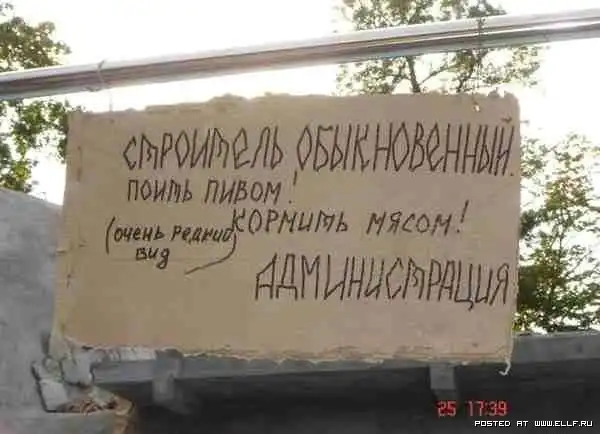 СТРОИТЕЛЬ ОБЫКНОВЕННЫЙ.
ПОИТЬ ПИВОМ!
КОРМИТЬ МЯСОМ!
(ОЧЕНЬ РЕДКИЙ
ВИД)
АДМИНИСТРАЦИЯ
25 17:39
POSTED AT WWW.ELLF.RU